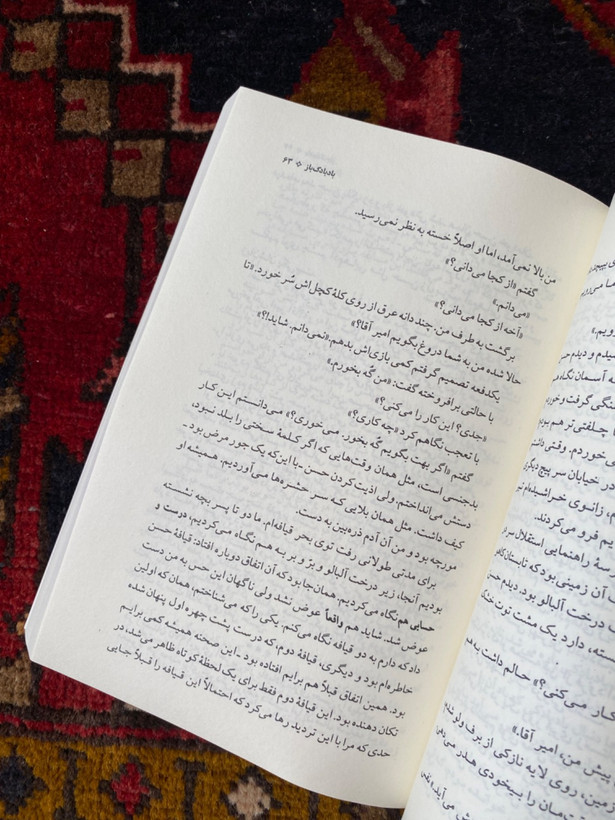 بادبادک‌باز ◇ ۶۳
من بالا نمی‌آمد، اما او اصلاً خسته به نظر نمی‌رسید.
گفتم «از کجا می‌دانی؟»
«می‌دانم.»
«آخه از کجا می‌دانی؟»
برگشت به طرف من. چند دانه عرق از روی کلهٔ کچل‌اش سُر خورد. «تا
حالا شده من به شما دروغ بگویم امیر آقا؟»
یکدفعه تصمیم گرفتم کمی بازی‌اش بدهم. «نمی‌دانم. شاید!؟»
با حالتی برافروخته گفت: «من گُه بخورم.»
«جدی؟ این کار را می‌کنی؟»
با تعجب نگاهم کرد «چه کاری؟»
گفتم «اگر بهت بگویم گُه بخور. می‌خوری؟» می‌دانستم این کار
بدجنسی است، مثل همان وقت‌هایی که اگر کلمهٔ سختی را بلد نبود،
دستش می‌انداختم. ولی اذیت کردن حسن -با این‌که یک جور مرض بود-
کیف داشت. مثل همان بلایی که سر حشره‌ها می‌آوردیم. همیشه او
مورچه بود و من آن آدم ذره‌بین به دست.
برای مدتی طولانی رفت توی بحر قیافه‌ام. ما دو تا پسر بچه نشسته
بودیم آنجا، زیر درخت آلبالو و بِرّ و بِر به هم نگاه می‌کردیم، درست و
حسابی هم نگاه می‌کردیم. همان‌جا بود که آن اتفاق دوباره افتاد: قیافهٔ حسن
عوض شد. شاید هم واقعاً عوض نشد ولی ناگهان این حس به من دست
داد که دارم به دو قیافه نگاه می‌کنم. یکی را که می‌شناختم، همان که اولین
خاطره‌ام بود و دیگری، قیافهٔ دوم، که درست پشت چهره اول پنهان شده
بود. همین اتفاق قبلاً هم برایم افتاده بود -این صحنه همیشه کمی برایم
تکان دهنده بود. این قیافهٔ دوم فقط برای یک لحظهٔ کوتاه ظاهر می‌شد، در
حدی که مرا با این تردید رها می‌کرد که احتمالاً این قیافه را قبلاً جایی